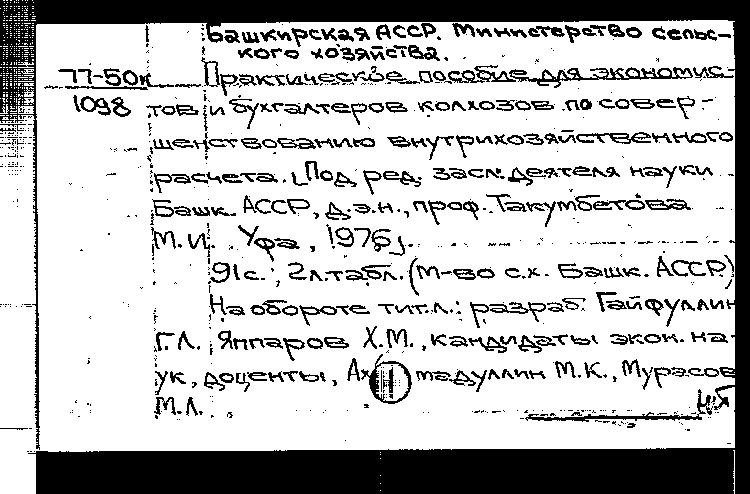 Башкирская АССР. Министерство сельс-
кого хозяйства.
77-50к Практическое пособие для экономис-
1098 тов и бухгалтеров колхозов по совер-
шенствованию внутрихозяйственного
расчета. Под ред. засл. деятеля науки
Башк. АССР, д.э.н., проф. Такумбетова
М.И. Уфа, 1976.
91с.; 2л.табл. (М-во с.х. Башк. АССР)
На обороте тит.л.: разраб. Гайфуллин
Г.Л., Яппаров Х.М., кандидаты экон. на-
ук, доценты, Ахмадуллин М.К., Мурасов
М.Л.